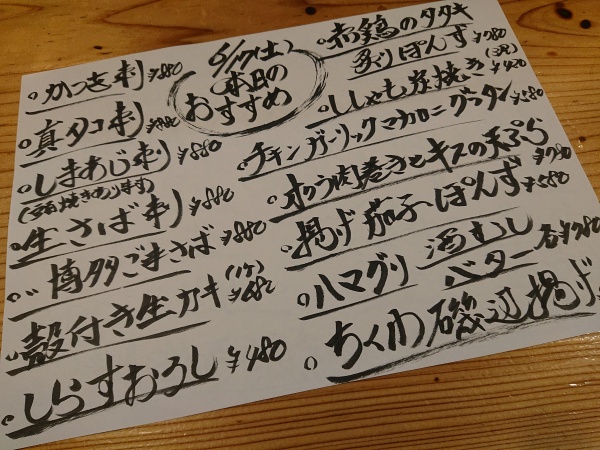 6/17(土)
本日の
おすすめ
かつお刺 ¥880
真タコ刺
しまあじ刺 ¥880
(頭焼きあります)
生さば刺 ¥880
博多ごまさば ¥880
殻付き生カキ (1ケ)
しらすおろし ¥480
赤鶏のタタキ
炙りぽんず ¥780
ししゃも炭焼き (3尾) ¥420
チキンガーリックマカロニグラタン ¥580
オクラ肉巻きとキスの天ぷら ¥780
揚げ茄子ぽんず ¥580
ハマグリ 酒むし
バター 各¥780
ちくわ磯辺揚げ